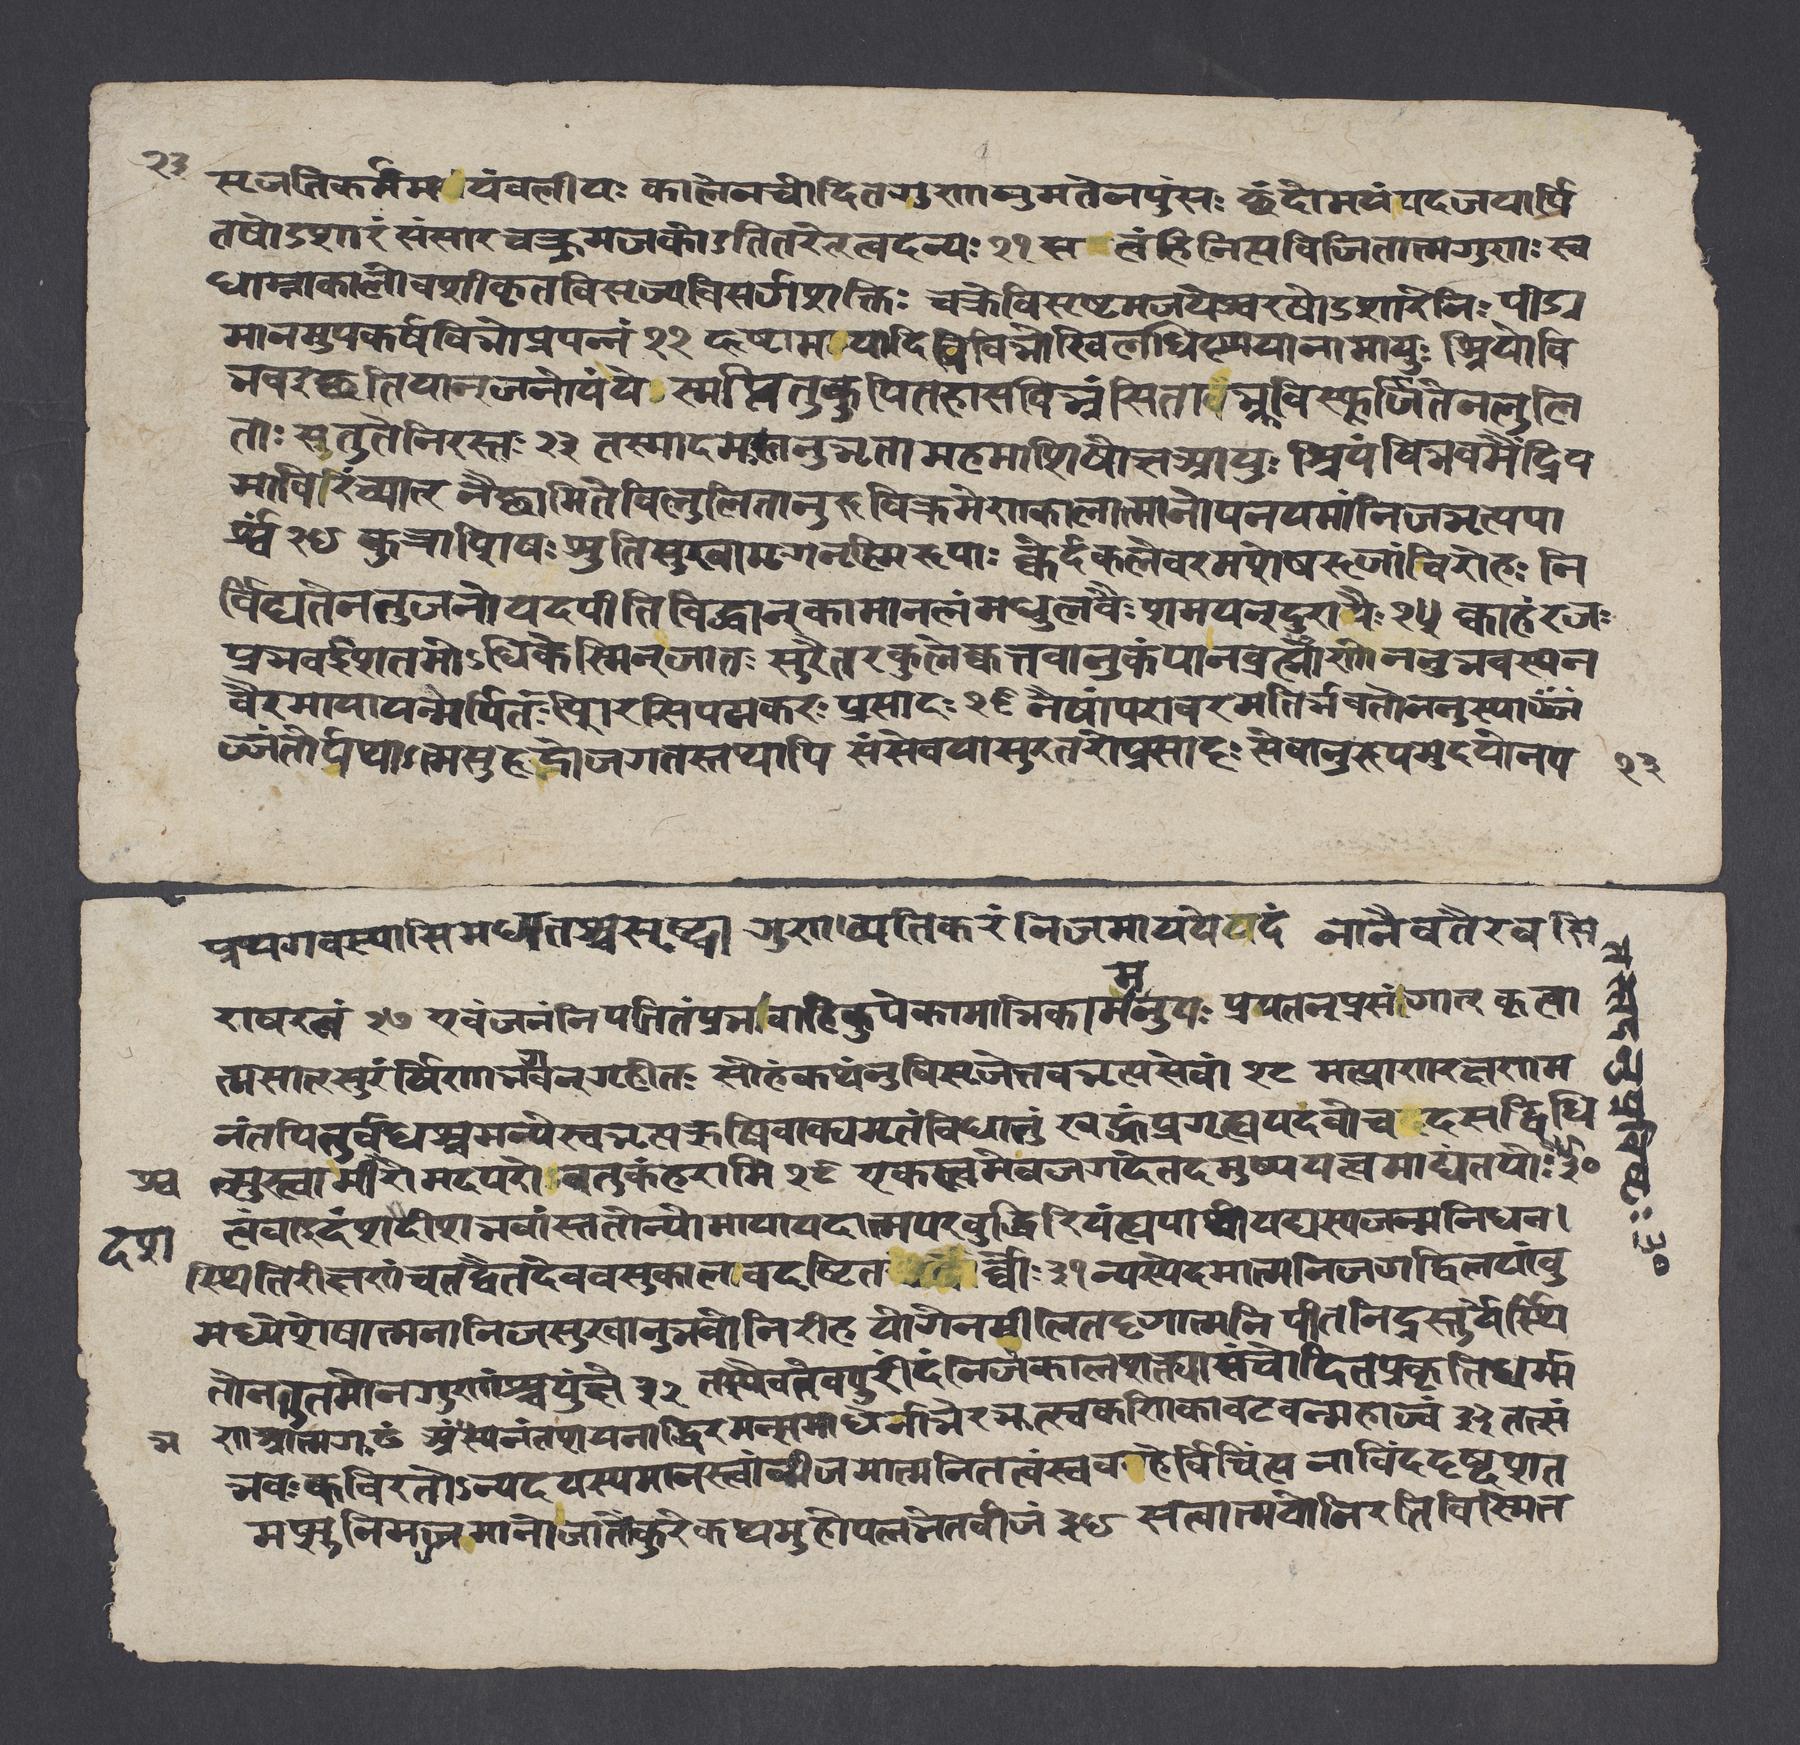 २३
सृजतिकर्ममयंबलीयः कालेनचोदितगुणानुमतेनपुंसः छंदोमयंयदजयार्पि
तषोडशारंसंसारचक्रमजकोऽतितरेत्त्वदन्यः २१ सत्वंहिनित्यविजितात्मगुणः स्व
धाम्नाकालोवशीकृतविसृज्यविसर्गशक्तिः चक्रेविसृष्टमजयेश्वरषोडशारेनिः पीड्य
मानमुपकर्षविभोप्रपन्नं २२ दृष्टामयादिविविभोखिलधिष्ण्यपानामायुः श्रियोवि
भवइच्छतियान्जनोयं येस्मत्पितुःकुपितहासविजृंभितभ्रूविस्फूर्जितेनलुलि
ताः सतुतेनिरस्तः २३ तस्मादमूस्तनुभृतामहमाशिषोज्ञआयुः श्रियंविभवमैंद्रिय
माविरिंच्यात् नेच्छामितेविलुलितानुरुविक्रमेणकालात्मनोपनयमांनिजभृत्यपा
र्श्वं २४ कुत्राशिषः श्रुतिसुखामृगतृष्णिरूपाः क्वेदंकलेवरमशेषरुजांविरोहः नि
र्विद्यतेनतुजनोयदपीतिविद्वान्कामानलंमधुलवैः शमयन्दुरापैः २५ क्वाहंरजः
प्रभवईशतमोऽधिकेस्मिन्जातः सुरेतरकुलेक्वतवानुकंपानब्रह्मणोननुभवस्यन
वैरमायायन्मेर्पितः शिरसिपद्मकरः प्रसादः २६ नैषांपरावरमतिर्भवतोननुस्या
ज्जंतोर्यथात्मसुहृदोजगतस्तथापि संसेवयासुरतरोप्रसादः सेवानुरूपमुदयोनप
२३
गुणव्यतिकरंनिजमाययेदं नानेवतैरवसि
म
२७ एवंजनंनिपतितंप्रभवाहिकूपेकामाभिकामनुयः प्रपतन्प्रसंगात् कृत्वा
त्मसात्सुरर्षिणाभगवन्गृहीतः सोहंकथंनुविसृजेत्तवभृत्यसेवां २८ मत्प्राणरक्षणम
नंतपितुर्वधश्चमन्येस्वभृत्यऋषिवाक्यमृतंविधातुं खड्गंप्रगृह्ययदवोचदसद्विधि
श्च
त्सुस्त्वामीश्वरोमदपरोवतुकंहरामि २९ एकस्त्वमेवजगदेतदमुष्ययत्वमाद्यंतयोः
३०
दश
त्वंवाइदंसदसदीशभवांस्ततोन्योमायायदात्मपरबुद्धिरियंह्यपार्थायद्यस्यजन्मनिधन
स्थितिरीक्षणंचतद्वैतदेववसुकालवदष्टित
३१ न्यस्येदमात्मनिजगद्विलयांबु
मध्येशेषात्मनानिजसुखानुभवोनिरीह योगेनमीलितदृगात्मनिपीतनिद्रस्तुर्येस्थि
तोनतुतमोनगुणांश्चयुंक्षे ३२ तस्यैवतेवपुरिदंनिजकालशक्त्यासंचोदितप्रकृतिधर्म
भ
णआत्मगूढं अंभस्यनंतशयनाद्विरमन्समाधेर्नाभेरभूत्स्वकणिकावटवन्महाब्जं ३३ तत्सं
भवः कविरतोऽन्यदपश्यमानस्त्वांबीजमात्मनिततंस्वबहिर्विचिंत्य नाविंददब्दशत
मप्सुनिमज्जमानोजातेंकुरेकथमुहोपलभेतबीजं ३४ सत्वात्मयोनिरतिविस्मित